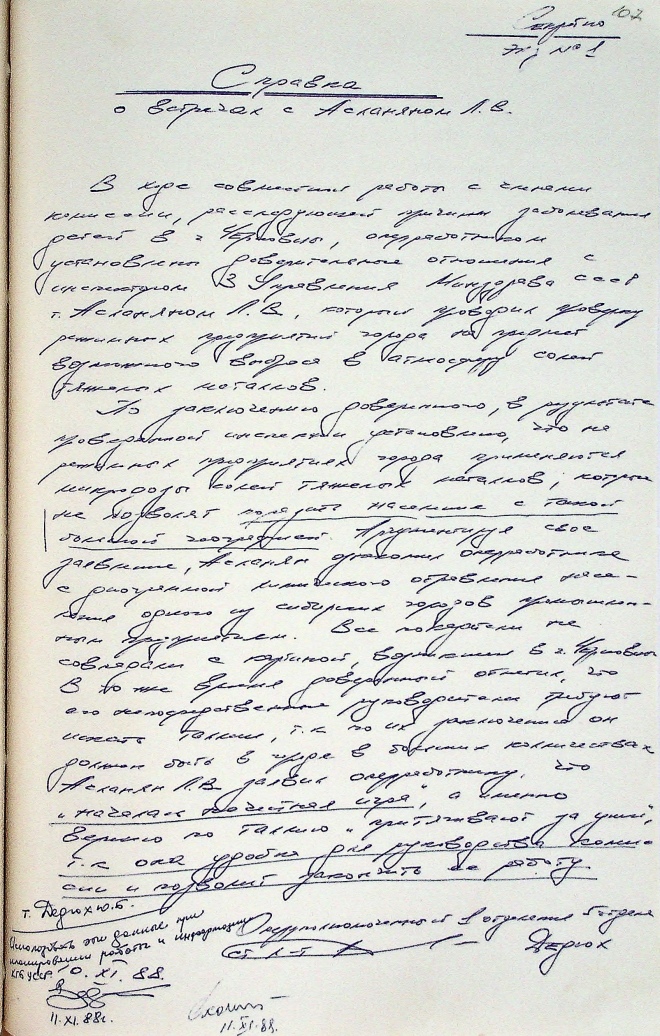 107
Секретно
Экз № 1
Справка
о встречах с Асланяном Л.В.
В ходе совместной работы с членами
комиссии, расследующей причины заболевания
детей в г. Черновцы, оперработником
установлены доверительные отношения с
инспектором 3 Управления Минздрава СССР
т. Асланяном Л.В., который проводил проверку
режимных предприятий города на предмет
возможного выброса в атмосферу солей
тяжелых металлов.
По заключению доверенного, в результате
проведенной инспекции установлено, что на
режимных предприятиях города применяются
микродозы солей тяжелых металлов, которые
не позволят поразить население с такой
большой географией. Аргументируя свое
заявление, Асланян ознакомил оперработника
с диаграммой химического отравления насе-
ления одного из сибирских городов промышлен-
ным предприятием. Все показатели не
совпадали с картиной, возникшей в г. Черновцы
В то же время доверенный отметил, что
его непосредственные руководители требуют
искать таллий, т.к. по их заключению он
должен быть в городе в больших количествах
Асланян Л.В. заявил оперработнику, что
"началась нечестная игра", а именно
версию по таллию "притягивают за уши",
т.к. она удобна для руководства комис-
сии и позволит закончить ее работу.
т. Дедюх Ю.Б.
Использовать эти данные при
планировании работы и информации
КГБ УССР. 10.XI.88.
11.XI.88г.
Оперуполномоченный 1 отделения 5 отдела
ст. л-т Дедюх
11.XI.88.